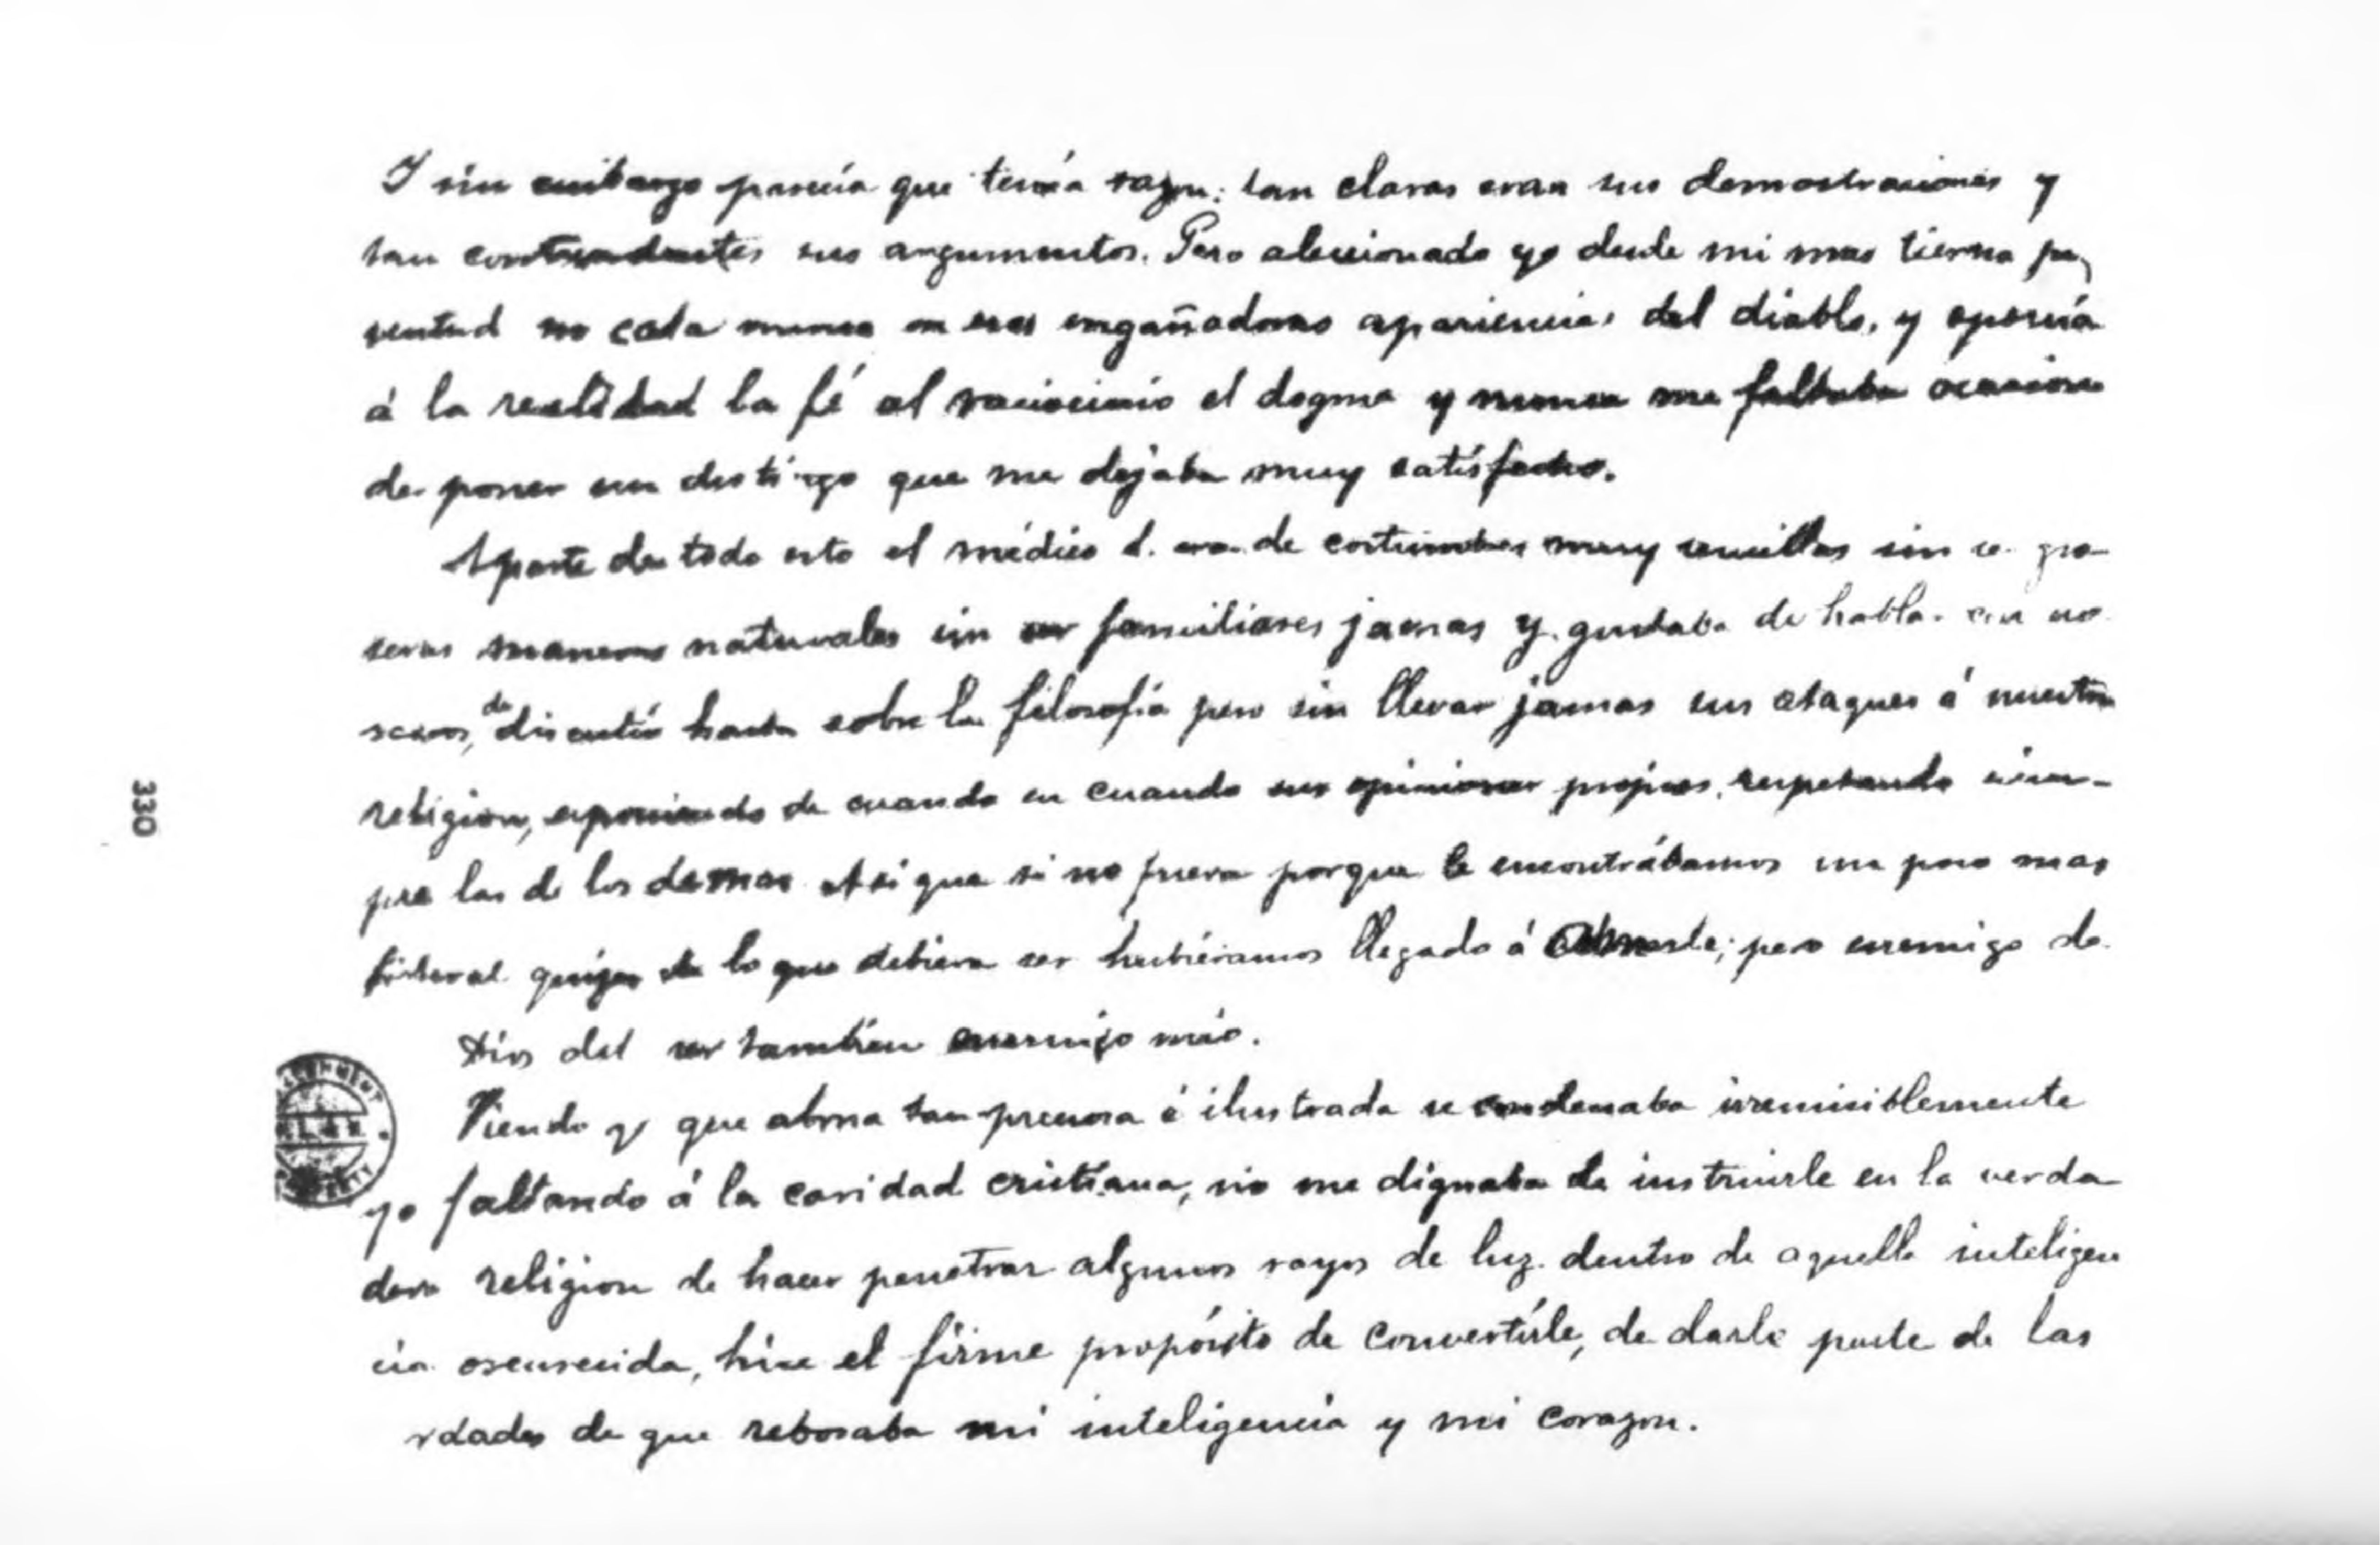 Y sin embargo parecía que tenía razon: tan claras eran sus demostraciones y
tan contundentes sus argumentos. Pero aleccionado yo desde mi mas tierna ju
ventud no caía nunca en esas engañadoras apariencias del diablo, y oponía
á la realidad la fé al raciocinio el dogma y nunca me faltaba ocasion
de poner un distingo que me dejaba muy satisfecho.
Aparte de todo esto el médico d. era de costumbres muy sencillas sin ser gro
seras maneras naturales sin ser familiares jamas y gustaba de hablar con no
sotros, de discutir hasta sobre la filosofía pero sin llevar jamas sus ataques á nuestra
religion, exponiendo de cuando en cuando sus opiniones propias, respetando siem-
pre las de los demas Asi que si no fuera porque le encontrábamos un poco mas
liberal quizas de lo que debiera ser hubiéramos llegado á ; pero enemigo de
Dios del ser tambien enemigo mio.
Viendo yo que alma tan preciosa é ilustrada se condenaba irremisiblemente
yo faltando á la caridad cristiana, no me dignaba de instruirle en la verda
dera religion de hacer penetrar algunos rayos de luz dentro de aquella inteligen
cia oscurecida, hice el firme propósito de convertirle, de darle parte de las
rdades de que rebosaba mi inteligencia y mi corazon.
330